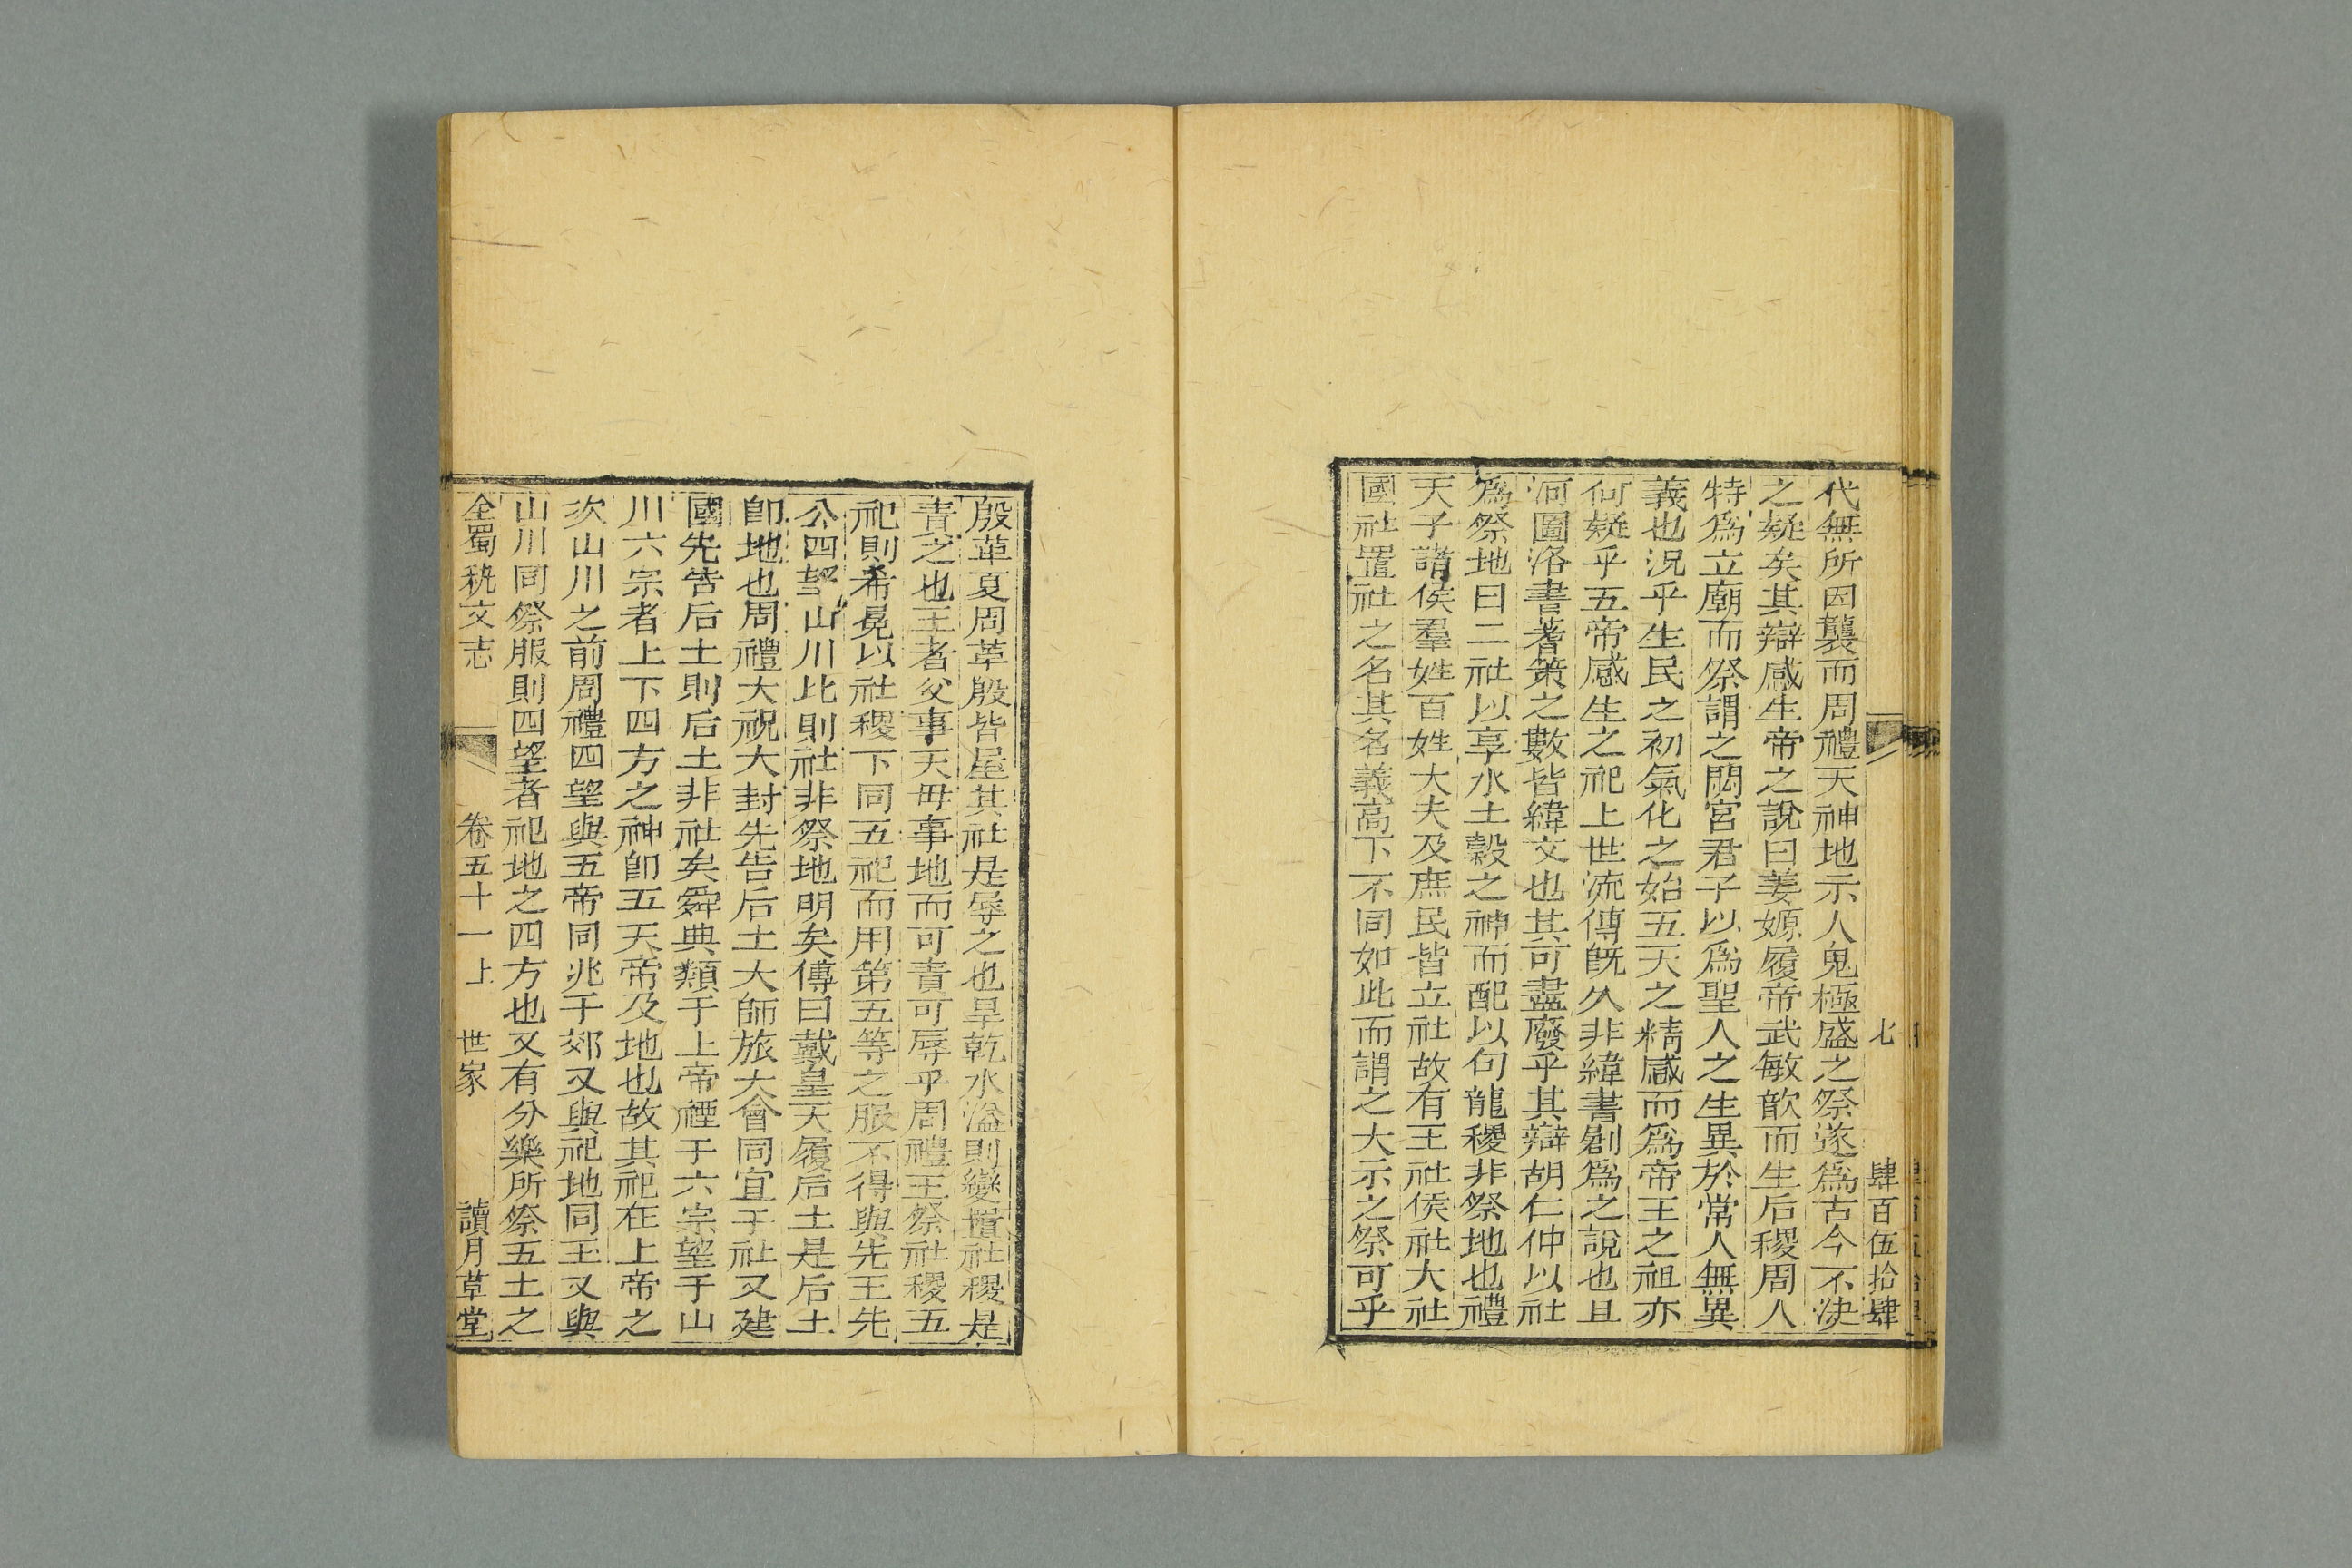 七　肆百伍拾肆
代無所因襲而周禮天神地示人鬼極盛之祭遂爲古今不决
之疑矣其辯感生帝之說曰姜嫄履帝武敏歆而生后稷周人
特爲立廟而祭謂之閟宮君子以爲聖人之生異於常人無異
義也況乎生民之初氣化之始五天之精感而爲帝王之祖亦
何疑乎五帝感生之祀上世流傳旣久非緯書剏爲之說也且
河圖洛書蓍策之數皆緯文也其可盡廢乎其辯胡仁仲以社
爲祭地曰二社以享水土穀之神而配以句龍稷非祭地也禮
天子諸侯羣姓百姓大夫及庶民皆立社故有王社侯社大社
國社置社之名其名義高下不同如此而謂之大示之祭可乎
殷革夏周革殷皆屋其社是辱之也旱乾水溢則變置社稷是
責之也王者父事天毋事地而可責可辱乎周禮王祭社稷五
祀則希冕以社稷下同五祀而用第五等之服不得與先王先
公四望山川比則社非祭地明矣傳曰戴皇天履后土是后土
卽地也周禮大祝大封先告后土大師旅大會同宜于社又建
國先告后土則后土非社矣舜典類于上帝禋于六宗望于山
川六宗者上下四方之神卽五天帝及地也故其祀在上帝之
次山川之前周禮四望與五帝同兆于郊又與祀地同玉又與
山川同祭服則四望者祀地之四方也又有分樂所祭五土之
全蜀秇文志　卷五十一上　世家　讀月草堂